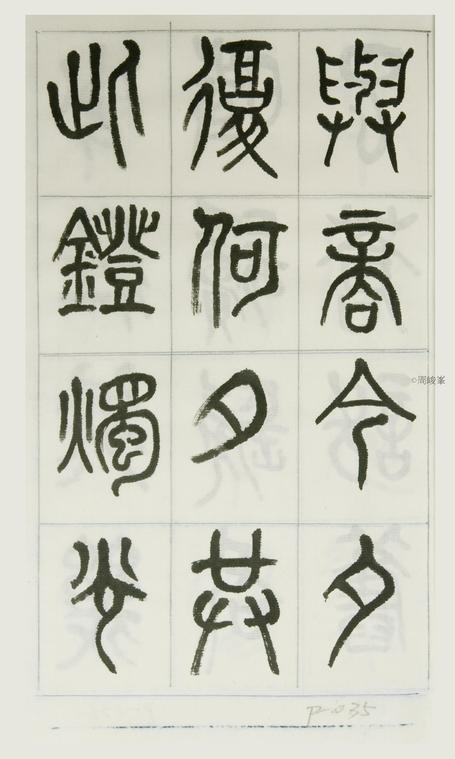 與商今夕
復何夕共
此鐙燭光
©周峻峯